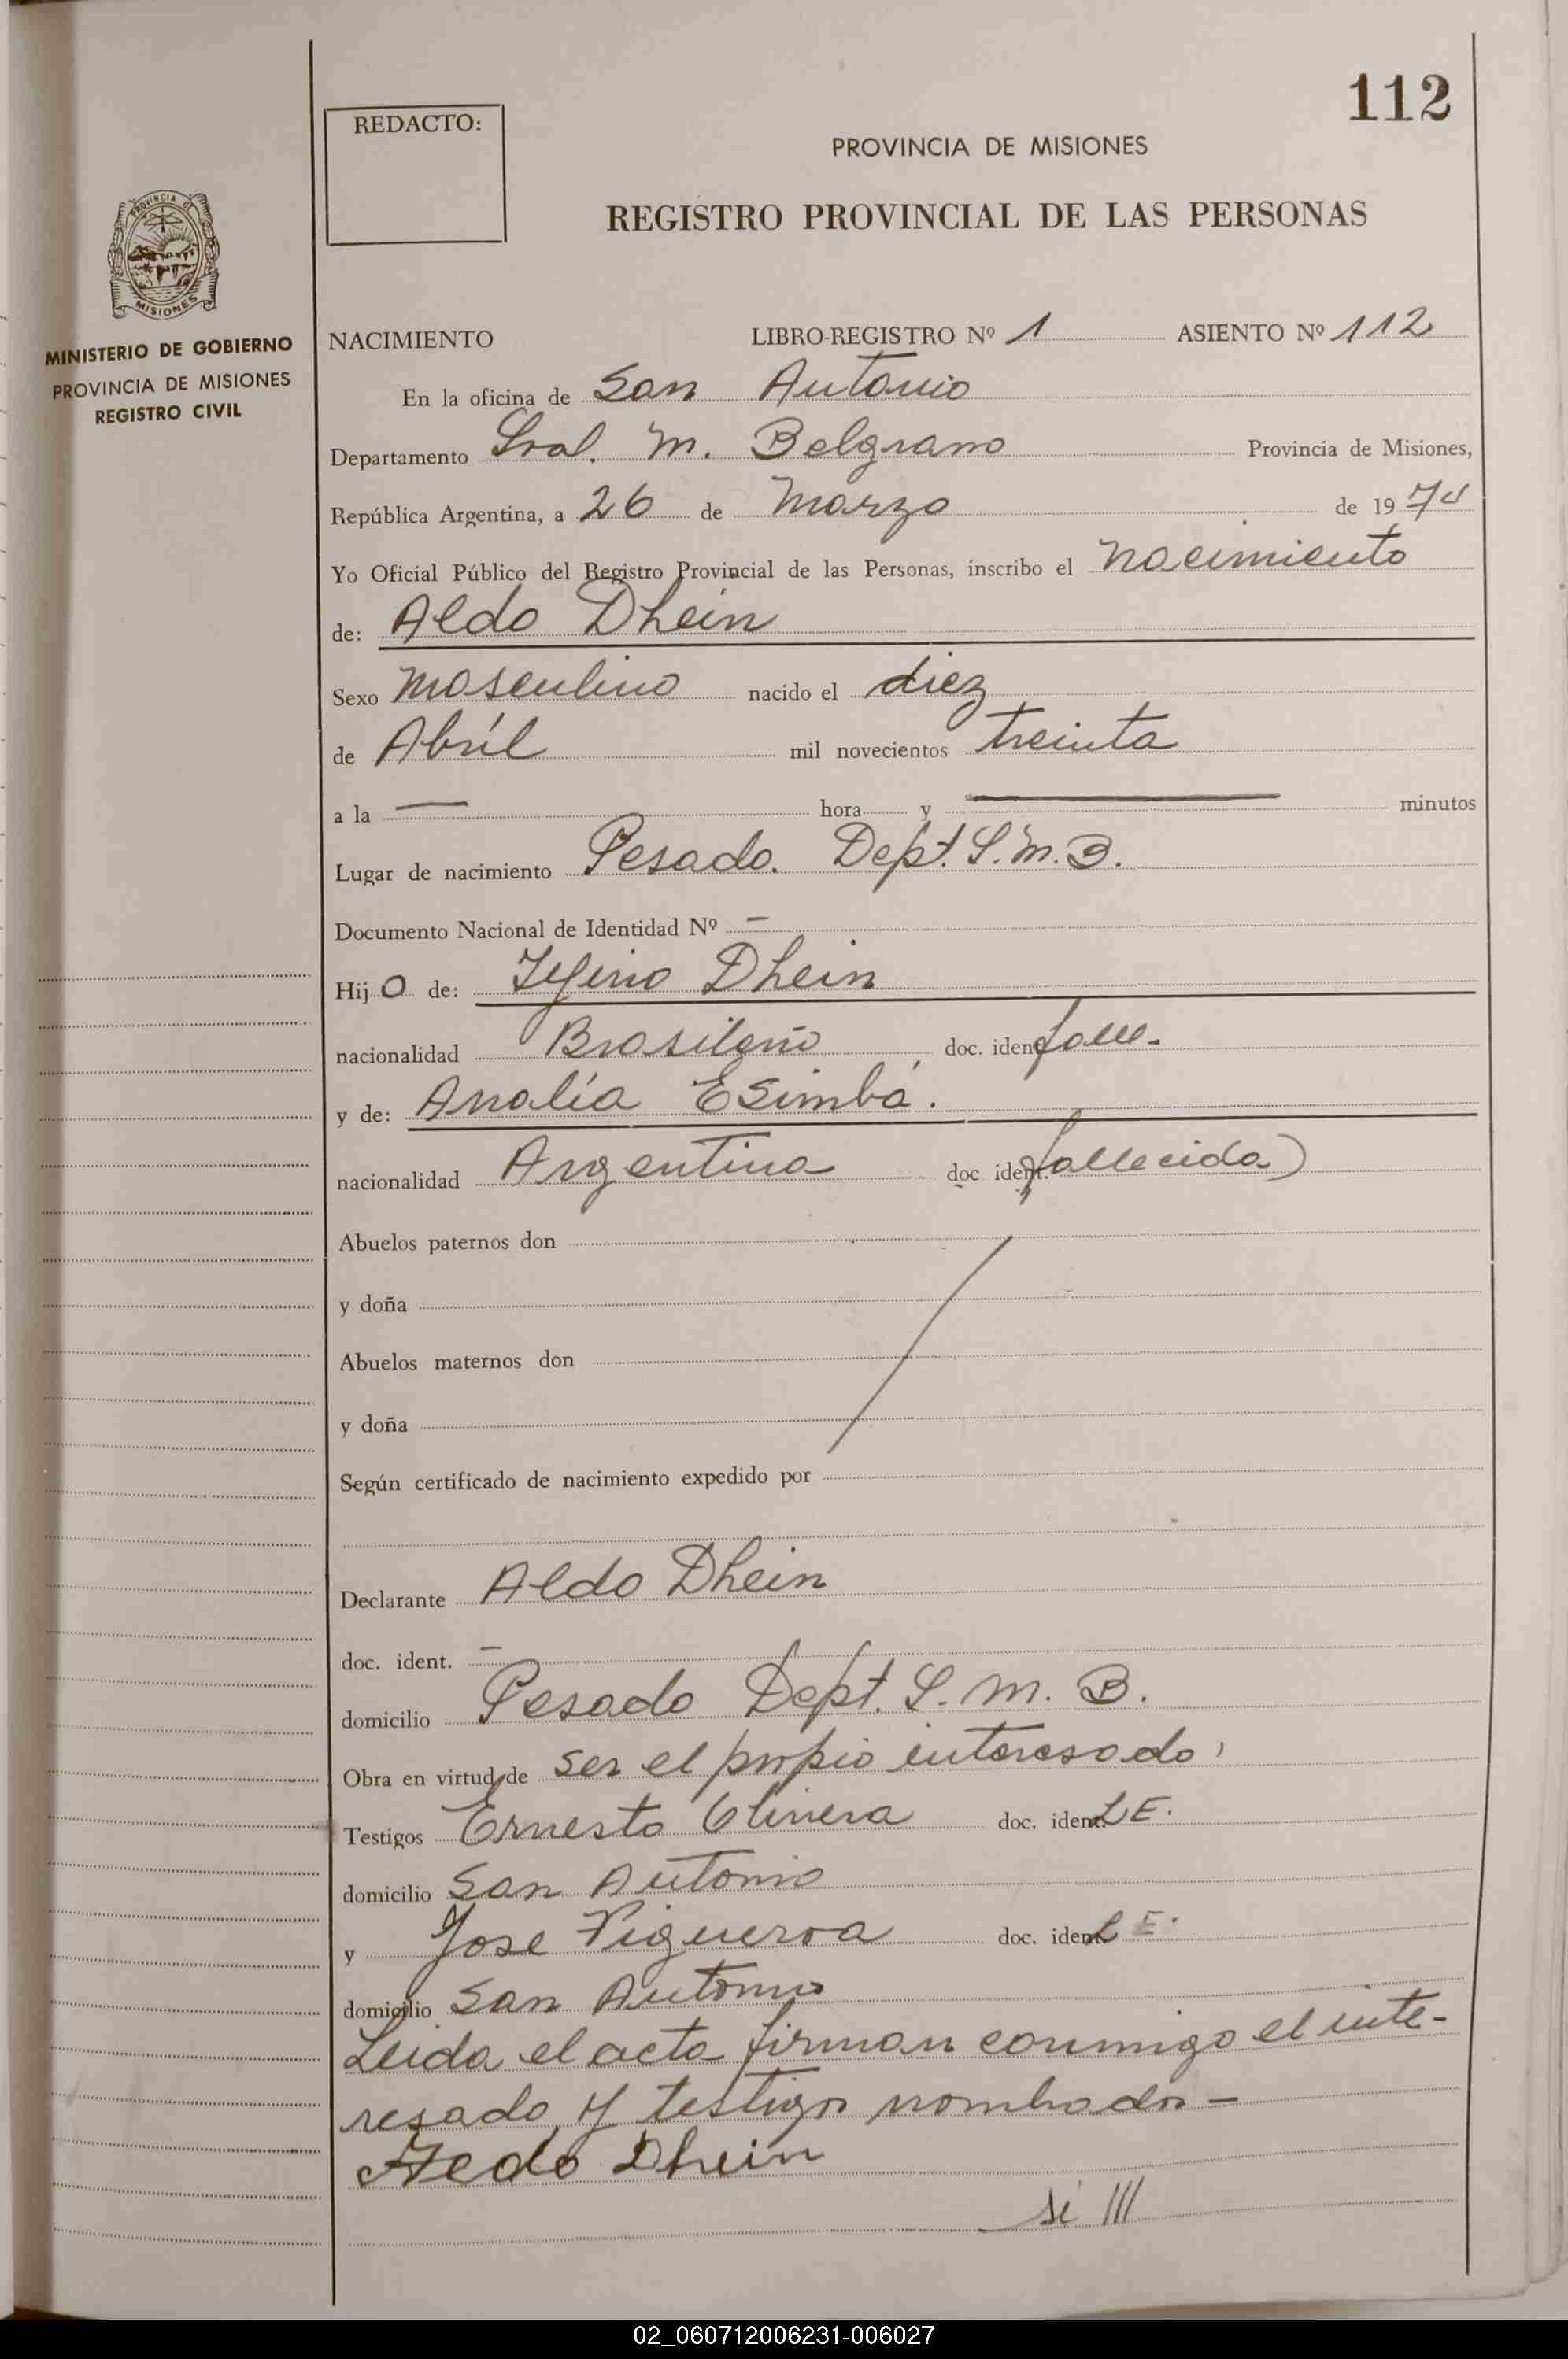 112
REDACTO:
PROVINCIA DE MISIONES
REGISTRO PROVINCIAL DE LAS PERSONAS
PROVINCIA DE
MISIONES
MINISTERIO DE GOBIERNO
PROVINCIA DE MISIONES
REGISTRO CIVIL
NACIMIENTO LIBRO-REGISTRO Nº 1 ASIENTO Nº 112
En la oficina de San Antonio
Departamento Gral. M. Belgrano Provincia de Misiones,
República Argentina, a 26 de Marzo de 1974
Yo Oficial Público del Registro Provincial de las Personas, inscribo el nacimiento
de: Aldo Dhein
Sexo masculino nacido el diez
de Abril mil novecientos treinta
a la — hora y — minutos
Lugar de nacimiento Pesado. Dept. G.M.B.
Documento Nacional de Identidad Nº —
Hijo de: Dhein
nacionalidad Brasileño doc. ident. falle.
y de: Analía Esimbá.
nacionalidad Argentina doc ident. fallecida)
Abuelos paternos don
y doña
Abuelos maternos don
y doña
Según certificado de nacimiento expedido por
Declarante Aldo Dhein
doc. ident. —
domicilio Pesado Dept. G. M. B.
Obra en virtud de ser el propio interesado
Testigos Ernesto Olivera doc. ident. L E.
domicilio San Antonio
y Jose Figueroa doc. ident. L E.
domicilio San Antonio
Leida el acta firman conmigo el inte-
resado, y testigos nombrados —
Aldo Dhein
02_060712006231-006027